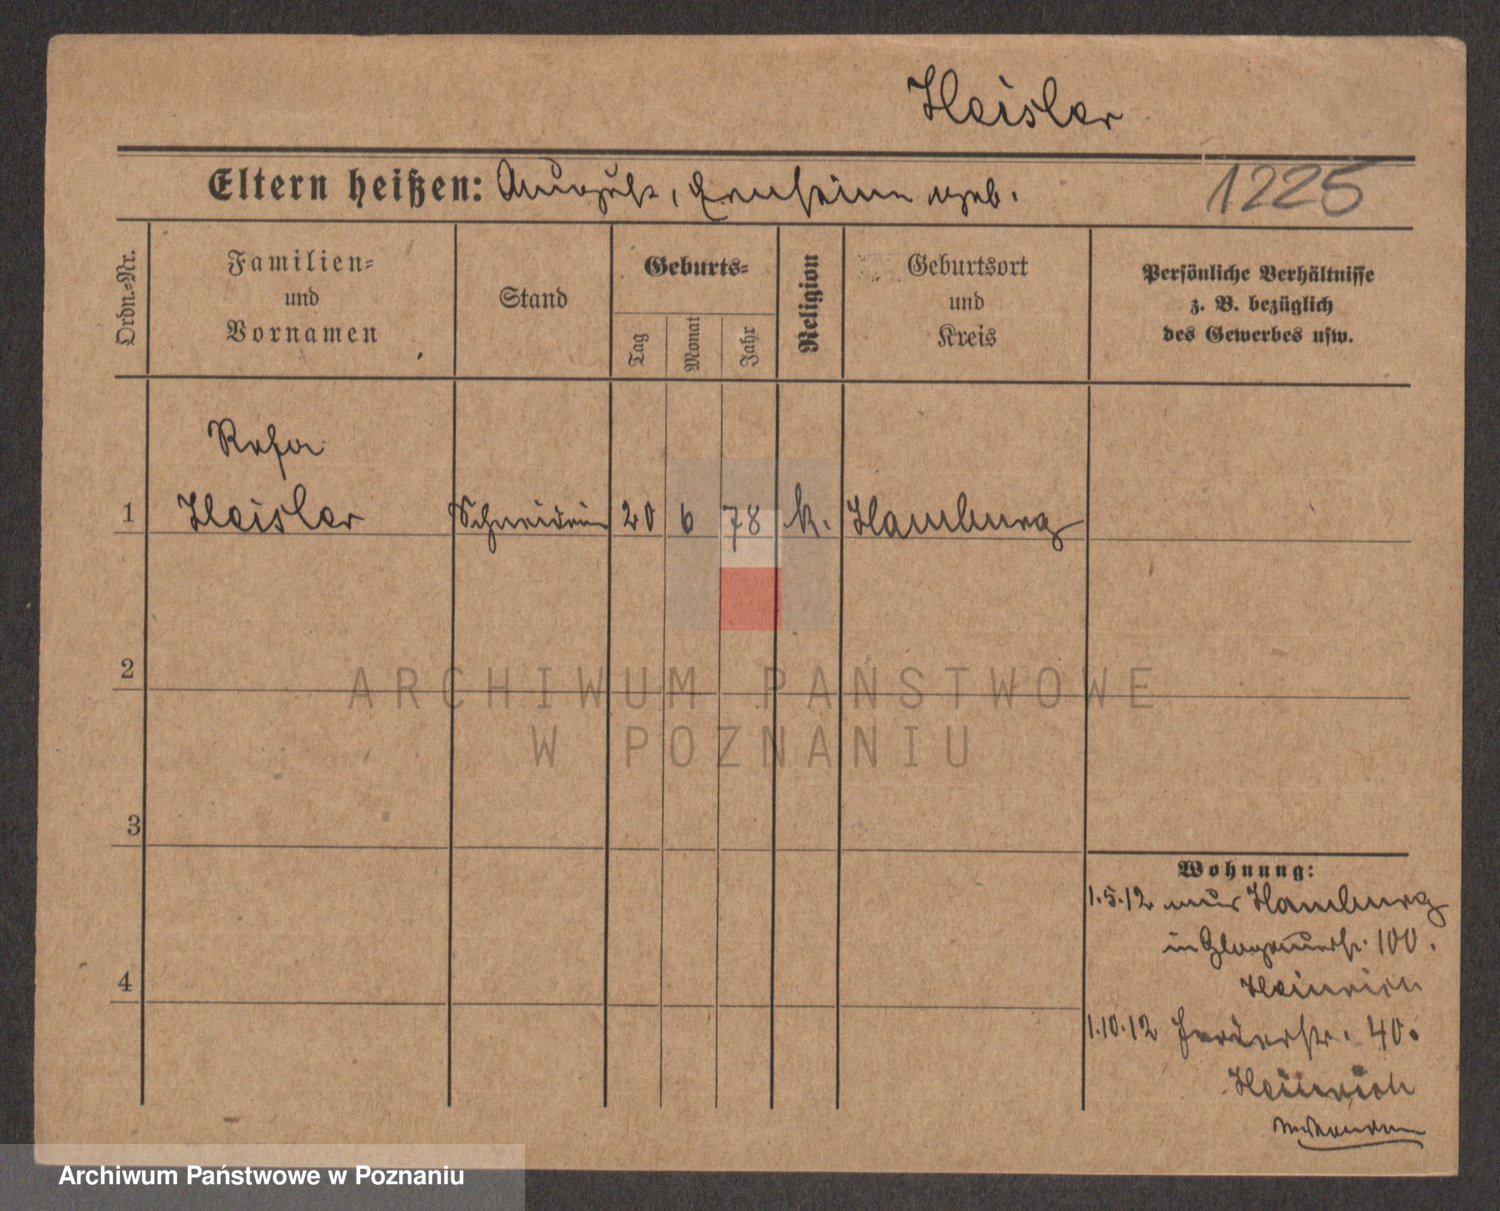 Heisler
Eltern heißen: August, geb.
1225
Ordn.-Nr.
Familien-
und
Vornamen
Stand
Geburts-
Tag
Monat
Jahr
Religion
Geburtsort
und
Kreis
Persönliche Verhältnisse
z. B. bezüglich
des Gewerbes usw.
Rosa
1 Heisler Schneiderin 20 6 78 k. Hamburg
2
ARCHIWUM PAŃSTWOWE
W POZNANIU
3
Wohnung:
1.5.12 aus Hamburg
in Glogauerstr. 100.
4
Heinrich
1.10.12 40.
Heinrich
Archiwum Państwowe w Poznaniu